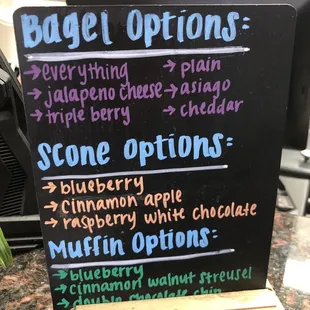 Bagel Options:
→ everything → plain
→ jalapeno cheese → asiago
→ triple berry → cheddar
Scone Options:
→ blueberry
→ cinnamon apple
→ raspberry white chocolate
Muffin Options:
→ blueberry
→ cinnamon walnut streusel
→ double chocolate chip